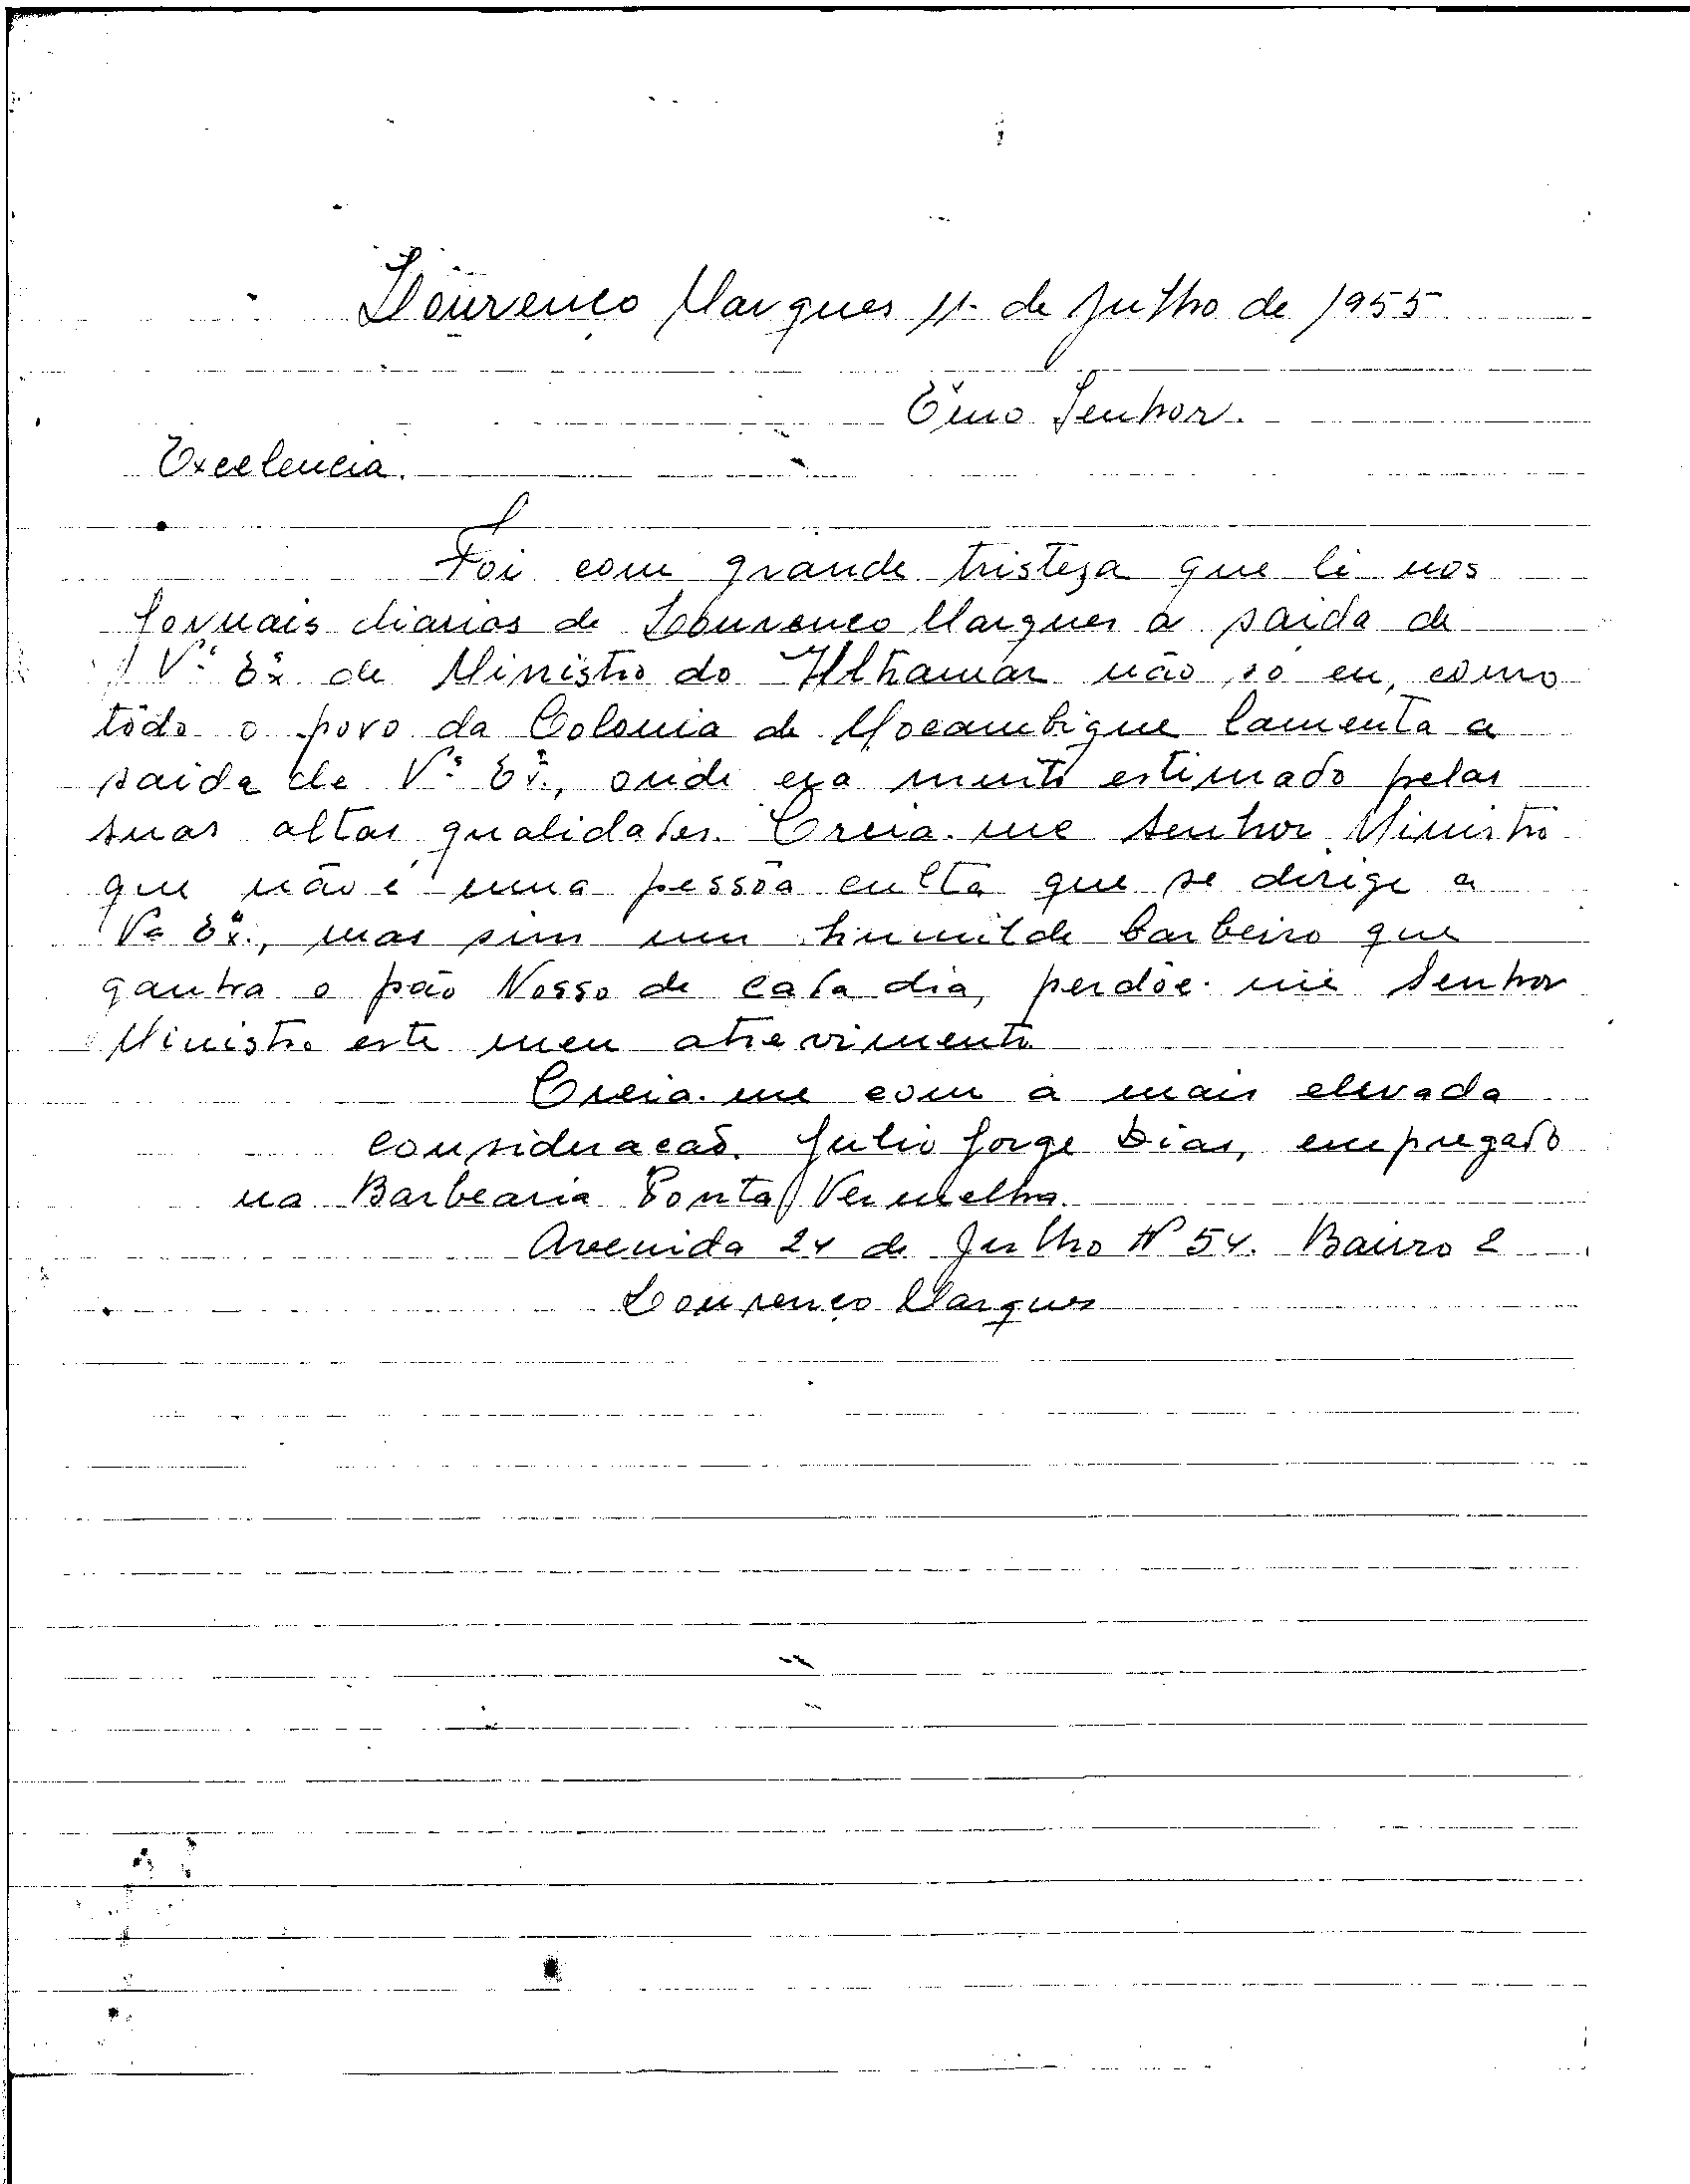 Lourenço Marques 11 de Julho de 1955
Exmo Senhor.
Excelencia.
Foi com grande tristeza que li nos
Jornais diarios de Lourenco Marques a saida de
Vª Exª de Ministro do Ultramar não só eu, como
tôdo o povo da Colonia de Mocambique lamenta a
saida de Vª Exª, onde era muito estimado pelas
suas altas qualidades. Creia-me Senhor Ministro
que não é uma pessôa culta que se dirige a
Vª Exª, mas sim um humilde barbeiro que
ganha o pão Nosso de cada dia, perdôe-me Senhor
Ministro este meu atrevimento
Creia-me com a mais elevada
consideracaõ. Julio Jorge Dias, empregado
na Barbearia Ponta Vermelha.
Avenida 24 de Julho Nº 54. Bairro 2
Lourenço Marques